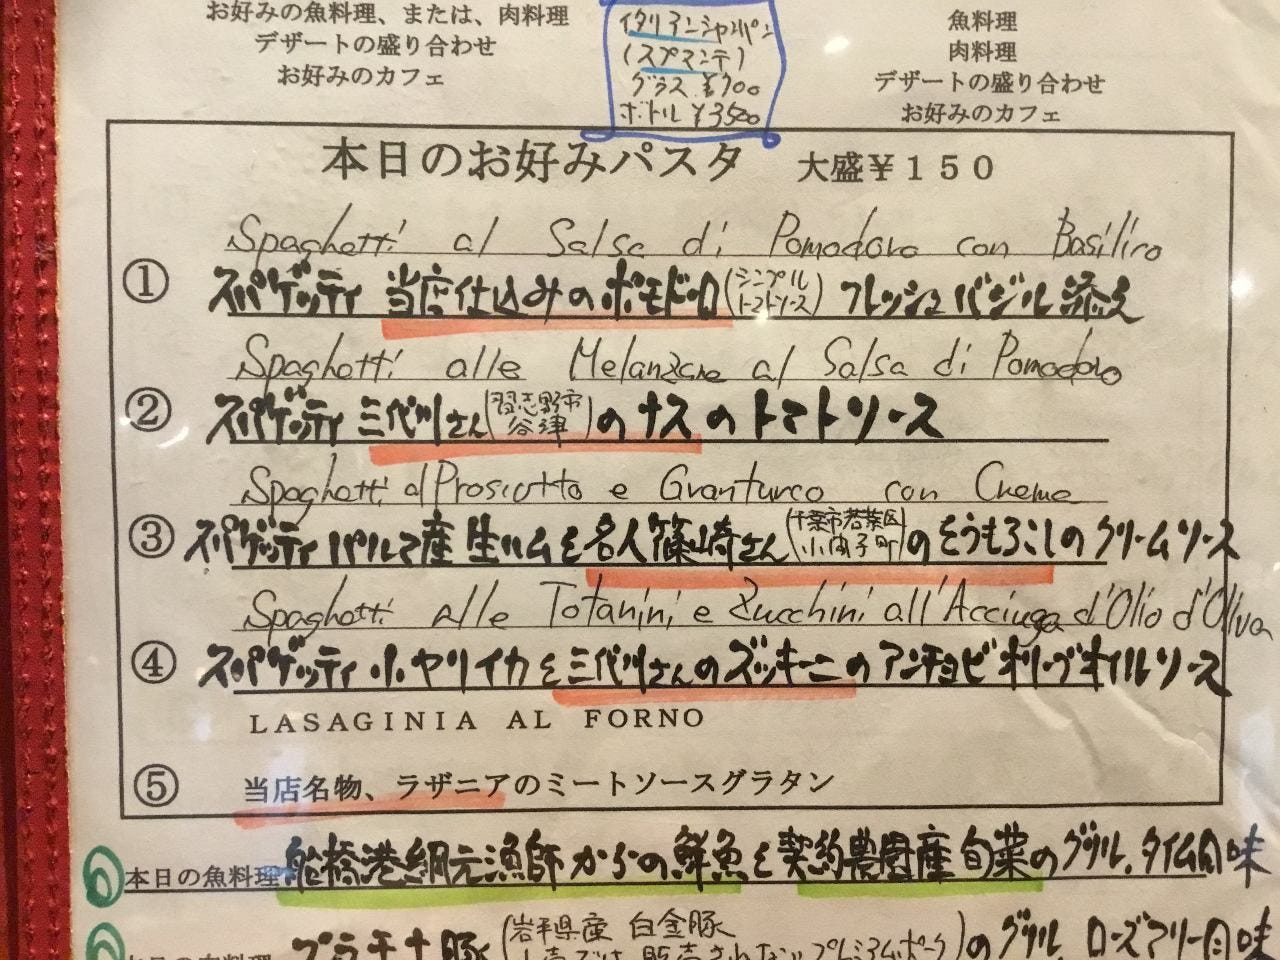 お好みの魚料理、または、肉料理
デザートの盛り合わせ
お好みのカフェ
イタリアンシャンパン
(スプマンテ)
グラス ¥700
ボトル ¥3500
魚料理
肉料理
デザートの盛り合わせ
お好みのカフェ
本日のお好みパスタ 大盛¥150
Spaghetti al Salsa di Pomodoro con Basilico
① スパゲッティ 当店仕込みのポモドロ(シンプルトマトソース) フレッシュバジル添え
Spaghetti alle Melanzane al Salsa di Pomodoro
② スパゲッティ 三代川さん(習志野市谷津)のナスのトマトソース
Spaghetti al Prosciutto e Granturco con Crema
③ スパゲッティ パルマ産 生ハムと名人篠崎さん(千葉市若葉区小間子町)のとうもろこしのクリームソース
Spaghetti alle Totanini e Zucchini all'Acciuga d'Olio d'Oliva
④ スパゲッティ 小ヤリイカと三代川さんのズッキーニのアンチョビオリーブオイルソース
LASAGINIA AL FORNO
⑤ 当店名物、ラザニアのミートソースグラタン
⑥ 本日の魚料理 船橋港網元漁師からの鮮魚と契約農園産旬菜のグリル、タイム風味
プラチナ豚(岩手県産 白金豚
プレミアムポーク)のグリル、ローズマリー風味